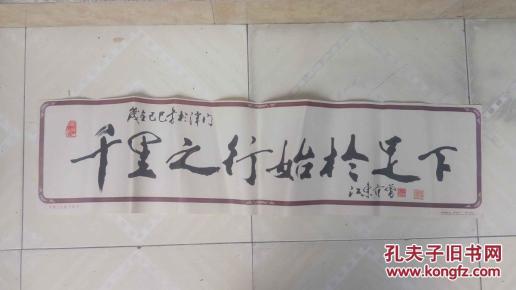 岁在己巳書於津门
千里之行始於足下
江東范曾
孔夫子旧书网
kongfz.com